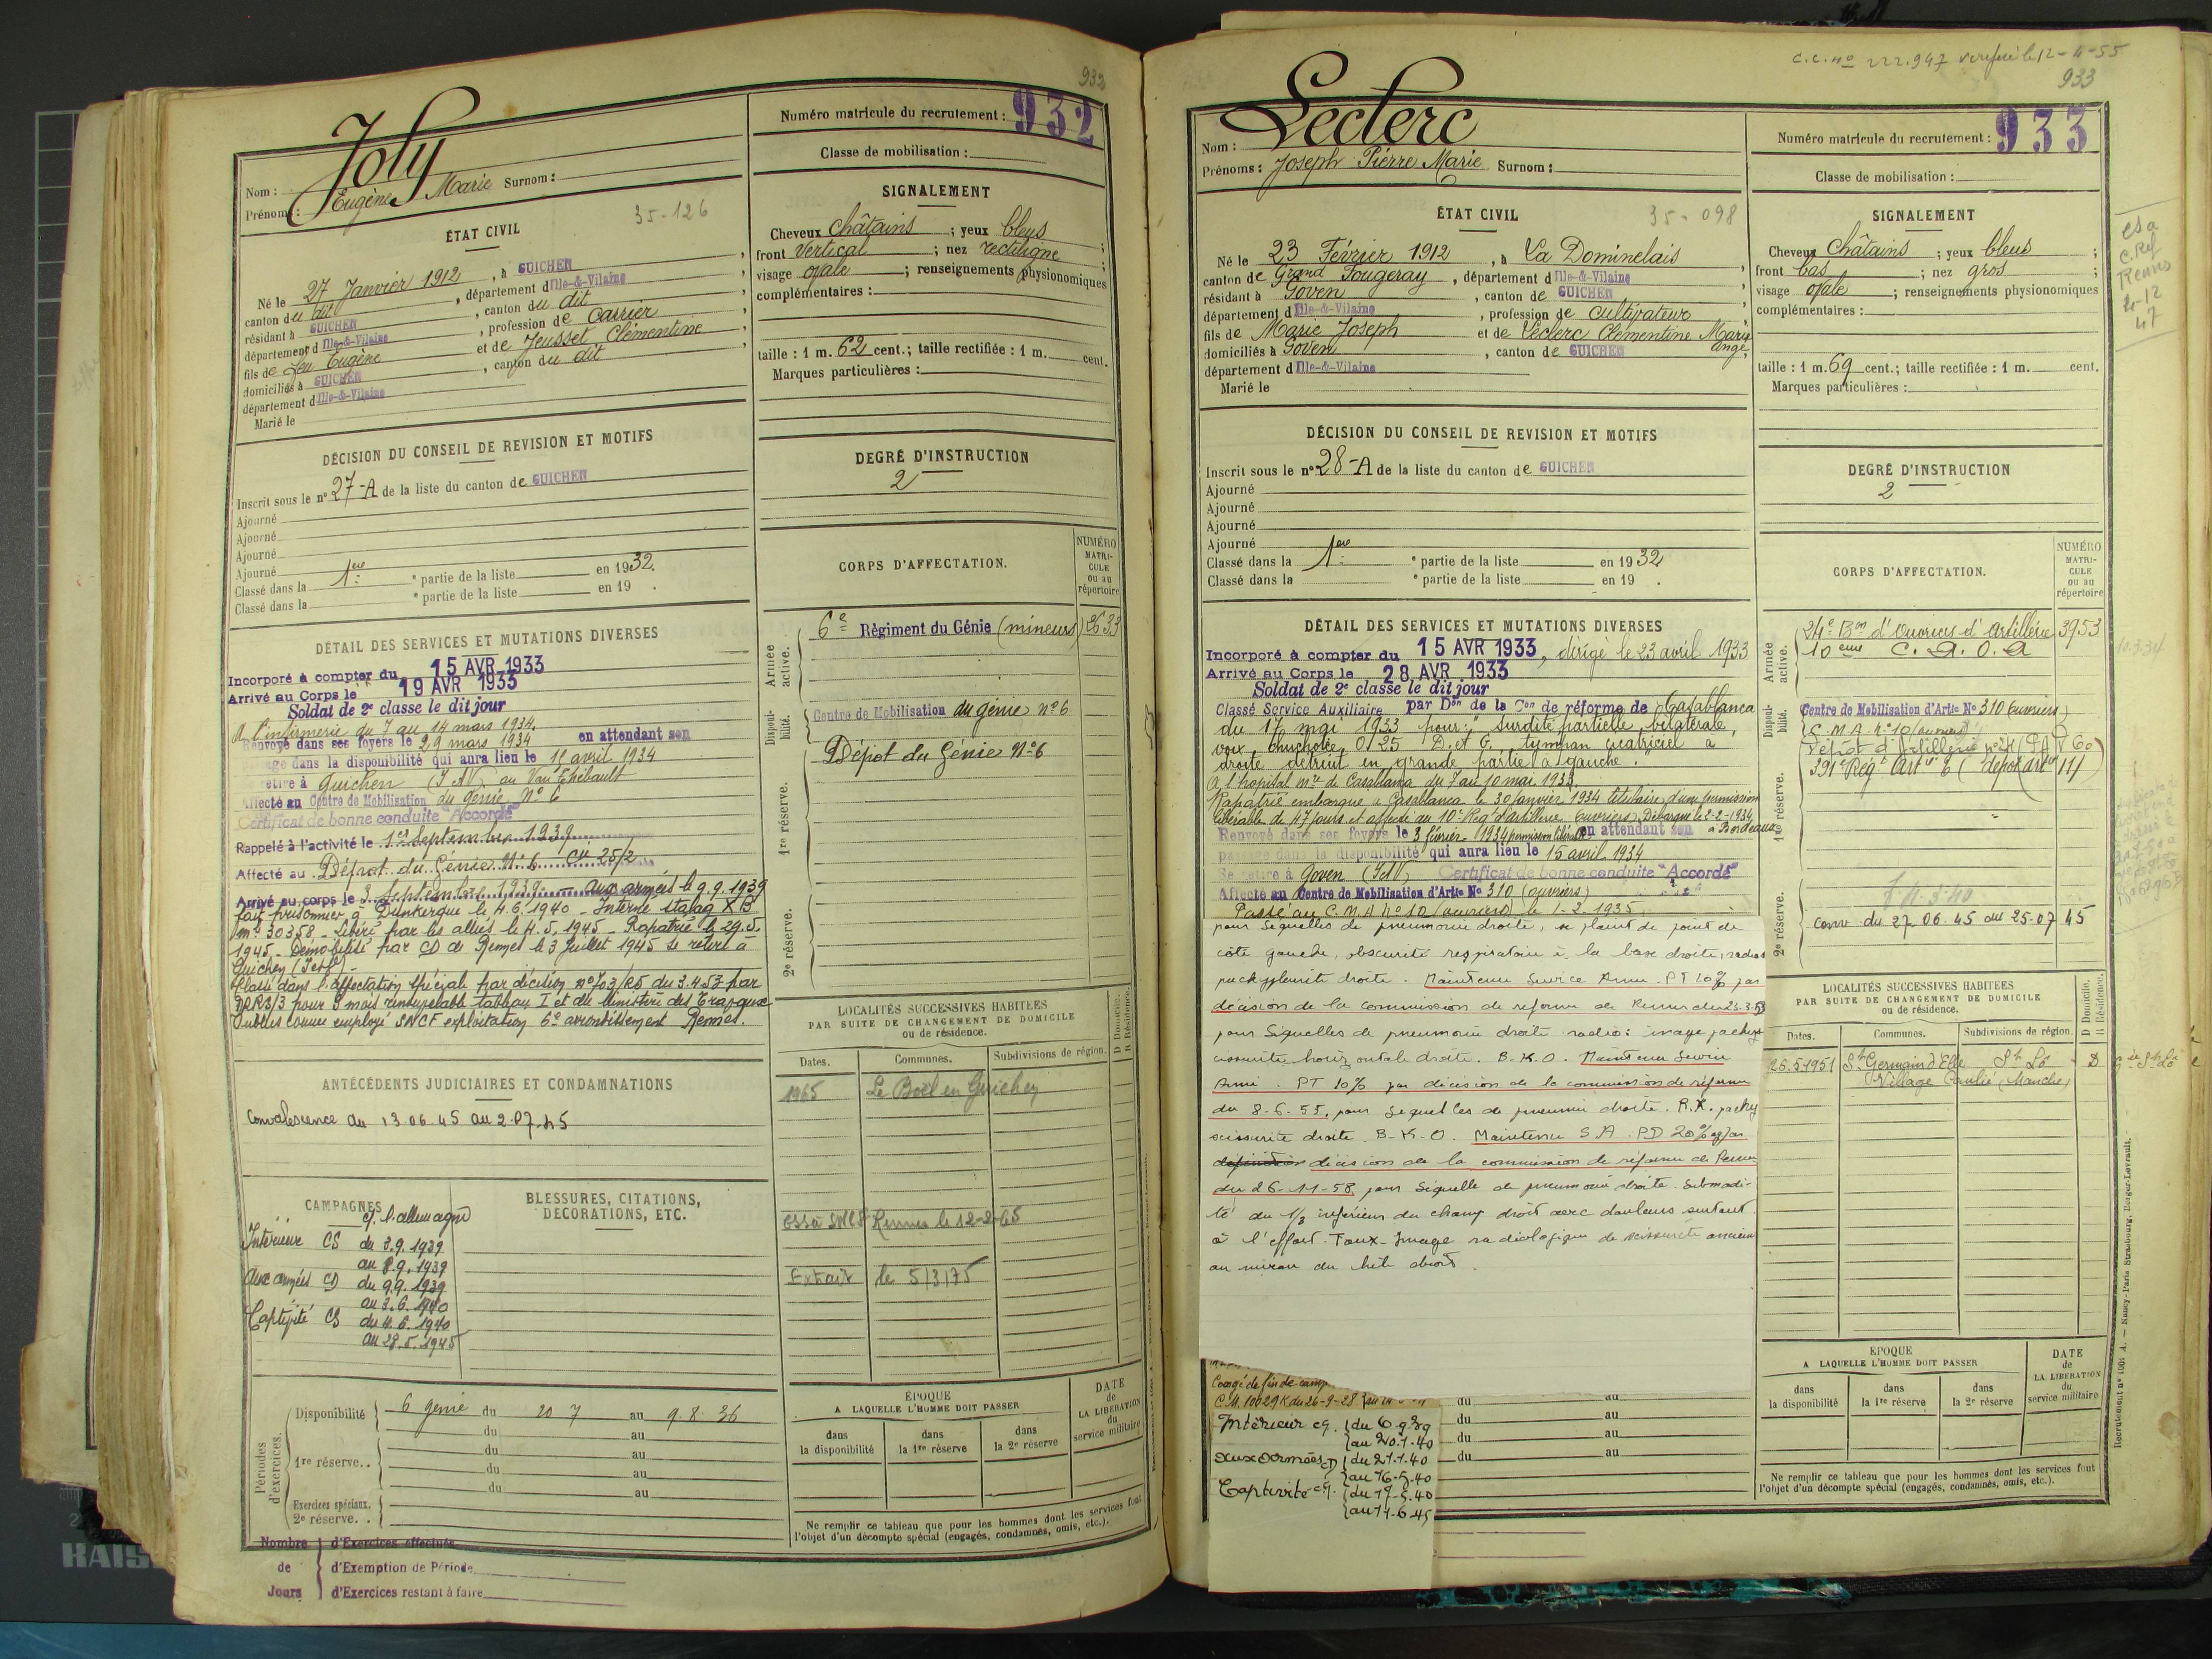 932
Joly
Nom :
Prénoms : Eugène Marie Surnom :
Numéro matricule du recrutement : 932
Classe de mobilisation :
ÉTAT CIVIL
35-126
Né le 27 Janvier 1912, à GUICHEN,
canton du dit, département d'Ille-&-Vilaine,
résidant à GUICHEN, canton du dit
département d'Ille-&-Vilaine, profession de Carrier
fils de feu Eugène et de Jeusset Clémentine,
domiciliés à GUICHEN, canton du dit
département d'Ille-&-Vilaine
Marié le
SIGNALEMENT
Cheveux châtains ; yeux bleus ;
front vertical ; nez rectiligne ;
visage ovale ; renseignements physionomiques
complémentaires :
taille : 1 m. 62 cent.; taille rectifiée : 1 m. cent.
Marques particulières :
DÉCISION DU CONSEIL DE REVISION ET MOTIFS
Inscrit sous le n° 27-A de la liste du canton de GUICHEN
Ajourné
Ajourné
Ajourné
Ajourné
Classé dans la 1ère ° partie de la liste en 1932.
Classé dans la ° partie de la liste en 19 .
DEGRÉ D'INSTRUCTION
2
DÉTAIL DES SERVICES ET MUTATIONS DIVERSES
Incorporé à compter du 15 AVR 1933
Arrivé au Corps le 19 AVR 1933
Soldat de 2e classe le dit jour
A l'infirmerie du 7 au 14 mars 1934.
Renvoyé dans ses foyers le 29 mars 1934 en attendant son
passage dans la disponibilité qui aura lieu le 15 avril 1934
Se retire à Guichen (I&V) au
Affecté au Centre de Mobilisation du Génie N° 6
Certificat de bonne conduite "Accordé"
Rappelé à l'activité le 1er Septembre 1939
Affecté au Dépôt du Génie N° 6 Cie 25/2
Arrivé au corps le 3 Septembre 1939 - aux armées le 9.9.1939
fait prisonnier à Dunkerque le 4.6.1940 - Interné stalag X B
m° 30358 - Libéré par les alliés le 4.5.1945 - Rapatrié le 29.5.
1945 - Démobilisé par CD de Rennes le 3 Juillet 1945 se retire à
Guichen
Classé dans l'affectation spéciale par décision n° 703/RS du 3.4.53 par
DRRS/3 pour 3 mois renouvelable tableau I et du Ministère des Travaux
Publics comme employé SNCF exploitation 6e arrondissement Rennes.
CORPS D'AFFECTATION.
NUMÉRO MATRICULE ou au répertoire
Armée active.
6e Régiment du Génie (mineurs) 2633
Disponibilité.
Centre de Mobilisation du génie n° 6
1re réserve.
Dépôt du Génie N° 6
2e réserve.
ANTÉCÉDENTS JUDICIAIRES ET CONDAMNATIONS
Convalescence du 13 06 45 au 2.07.45
LOCALITÉS SUCCESSIVES HABITÉES
PAR SUITE DE CHANGEMENT DE DOMICILE
ou de résidence.
D Domicile. R Résidence.
Dates. Communes. Subdivisions de région.
1965 Le Boël en Guichen
SNCF Rennes le 12-2-65
Extrait le 5/3/75
CAMPAGNES
c/. l'allemagne
Intérieur CS du 3.9.1939
au 8.9.1939
Aux armées CD du 9.9.1939
au 3.6.1940
Captivité CS du 4.6.1940
au 28.5.1945
BLESSURES, CITATIONS,
DÉCORATIONS, ETC.
Périodes d'exercices.
Disponibilité 6 génie du 20 7 au 9.8.36
du au
1re réserve.. du au
du au
du au
Exercices spéciaux.
2e réserve. .
ÉPOQUE
A LAQUELLE L'HOMME DOIT PASSER
DATE de LA LIBÉRATION du service militaire
dans la disponibilité dans la 1re réserve dans la 2e réserve
Ne remplir ce tableau que pour les hommes dont les services font
l'objet d'un décompte spécial (engagés, condamnés, omis, etc.).
Nombre d'Exercices effectués
de d'Exemption de Période
Jours d'Exercices restant à faire
C.C. n° 222.947 verifié le 12-4-55
933
Leclerc
Nom :
Prénoms : Joseph Pierre Marie Surnom :
Numéro matricule du recrutement : 933
Classe de mobilisation :
ÉTAT CIVIL
35-098
Né le 23 Février 1912, à La Dominelais,
canton de Grand Fougeray, département d'Ille-&-Vilaine
résidant à Goven, canton de GUICHEN
département d'Ille-&-Vilaine, profession de cultivateur
fils de Marie Joseph et de Leclerc Clémentine Marie Ange,
domiciliés à Goven, canton de GUICHEN
département d'Ille-&-Vilaine
Marié le
SIGNALEMENT
Cheveux châtains ; yeux bleus ;
front bas ; nez gros ;
visage ovale ; renseignements physionomiques
complémentaires :
taille : 1 m. 69 cent.; taille rectifiée : 1 m. cent.
Marques particulières :
Rennes
2-12
47
DÉCISION DU CONSEIL DE REVISION ET MOTIFS
Inscrit sous le n° 28-A de la liste du canton de GUICHEN
Ajourné
Ajourné
Ajourné
Ajourné
Classé dans la 1ère ° partie de la liste en 1932
Classé dans la ° partie de la liste en 19 .
DEGRÉ D'INSTRUCTION
2
DÉTAIL DES SERVICES ET MUTATIONS DIVERSES
Incorporé à compter du 15 AVR 1933, dirigé le 23 avril 1933
Arrivé au Corps le 28 AVR 1933
Soldat de 2e classe le dit jour
Classé Service Auxiliaire par Don de la Con de réforme de Casablanca
du 17 mai 1933 pour : "surdité partielle, bilatérale,
voix chuchotée 0,25 D. et G. tympan cicatriciel à
droite détruit en grande partie à gauche."
A l'hopital mre de Casablanca du 7 au 10 mai 1933.
Rapatrié embarqué à Casablanca le 30 janvier 1934 titulaire d'une permission
libérable de 47 jours et affecté au 10e Rég d'artillerie (ouvriers) Débarqué le 2-2-1934
Renvoyé dans ses foyers le 3 février 1934 en attendant son à Bordeaux
passage dans la disponibilité qui aura lieu le 15 avril 1934
Se retire à Goven (I&V) Certificat de bonne conduite "Accordé"
Affecté au Centre de Mobilisation d'Artie No 310 (ouvriers)
Passé au C.M.A n° 10 (ouvriers) le 1-2-1935.
pour séquelles de pneumonie droite, se plaint de point de
côté gauche, obscurité respiratoire à la base droite, radio
pachypleurite droite. Maintenu Service Armé. PT 10% par
décision de la commission de réforme de Rennes du 23.3.53
pour Séquelles de pneumonie droite radio : image pachy
scissurite horizontale droite. B.K.O. Maintenu Service
Armé. PT 10% par décision de la commission de réforme
du 8-6-55, pour séquelles de pneumonie droite. R.X. pachy
scissurite droite. B-K-O. Maintenu S A. PD 20%
décision de la commission de réforme de Rennes
du 26-11-58, pour Séquelle de pneumonie droite. Submati-
té du 1/3 inférieur du champ droit avec douleurs surtout
à l'effort. Toux - Image radiologique de scissurite ancienne
au niveau du hile droit.
CORPS D'AFFECTATION.
NUMÉRO MATRICULE ou au répertoire
Armée active.
24e Bon d'ouvriers d'artillerie 3953
10ème C. A. O. A
10.3.34
Disponibilité.
Centre de Mobilisation d'Artie No 310 (ouvriers)
C.M.A. n° 10 (ouvriers)
1re réserve.
Dépôt d'Artillerie n° 21
391e Régt Artie
2e réserve.
Conv. du 27 06.45 au 25-07 45
LOCALITÉS SUCCESSIVES HABITÉES
PAR SUITE DE CHANGEMENT DE DOMICILE
ou de résidence.
D Domicile. R Résidence.
Dates. Communes. Subdivisions de région.
26.5.1951 St Germain d'Elle St Lô D
Village Caulié (Manche)
Congé de fin de camp
Intérieur du 6.9.39
au 20.1.40
aux armées CD du 21.1.40
au 16.5.40
Captivité du 17.5.40
au 11-6-45
du au
du au
du au
du au
ÉPOQUE
A LAQUELLE L'HOMME DOIT PASSER
DATE de LA LIBÉRATION du service militaire
dans la disponibilité dans la 1re réserve dans la 2e réserve
Ne remplir ce tableau que pour les hommes dont les services font
l'objet d'un décompte spécial (engagés, condamnés, omis, etc.).
Recrutement n° 1005 A. — Nancy-Paris Strasbourg, Berger-Levrault.